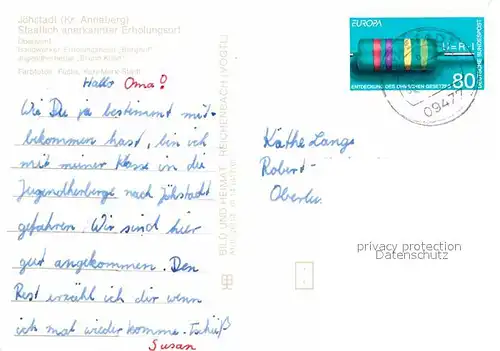 Jöhstadt (Kr. Annaberg)
Staatlich anerkannter Erholungsort
Hallo Oma!
Wie Du ja bestimmt mit-
bekommen hast, bin ich
mit meiner Klasse in die
Jugendherberge nach Jöhstadt
gefahren. Wir sind hier
gut angekommen. Den
Rest erzähl ich dir wenn
ich mal wieder komme. Tschüß
Susan
BILD UND HEIMAT REICHENBACH (VOGTL)
EUROPA
DEUTSCHE BUNDESPOST
80
ENTDECKUNG DES OHM'SCHEN GESETZES
09477
Käthe Lange
Robert-
Oberlu.
privacy protection
Datenschutz